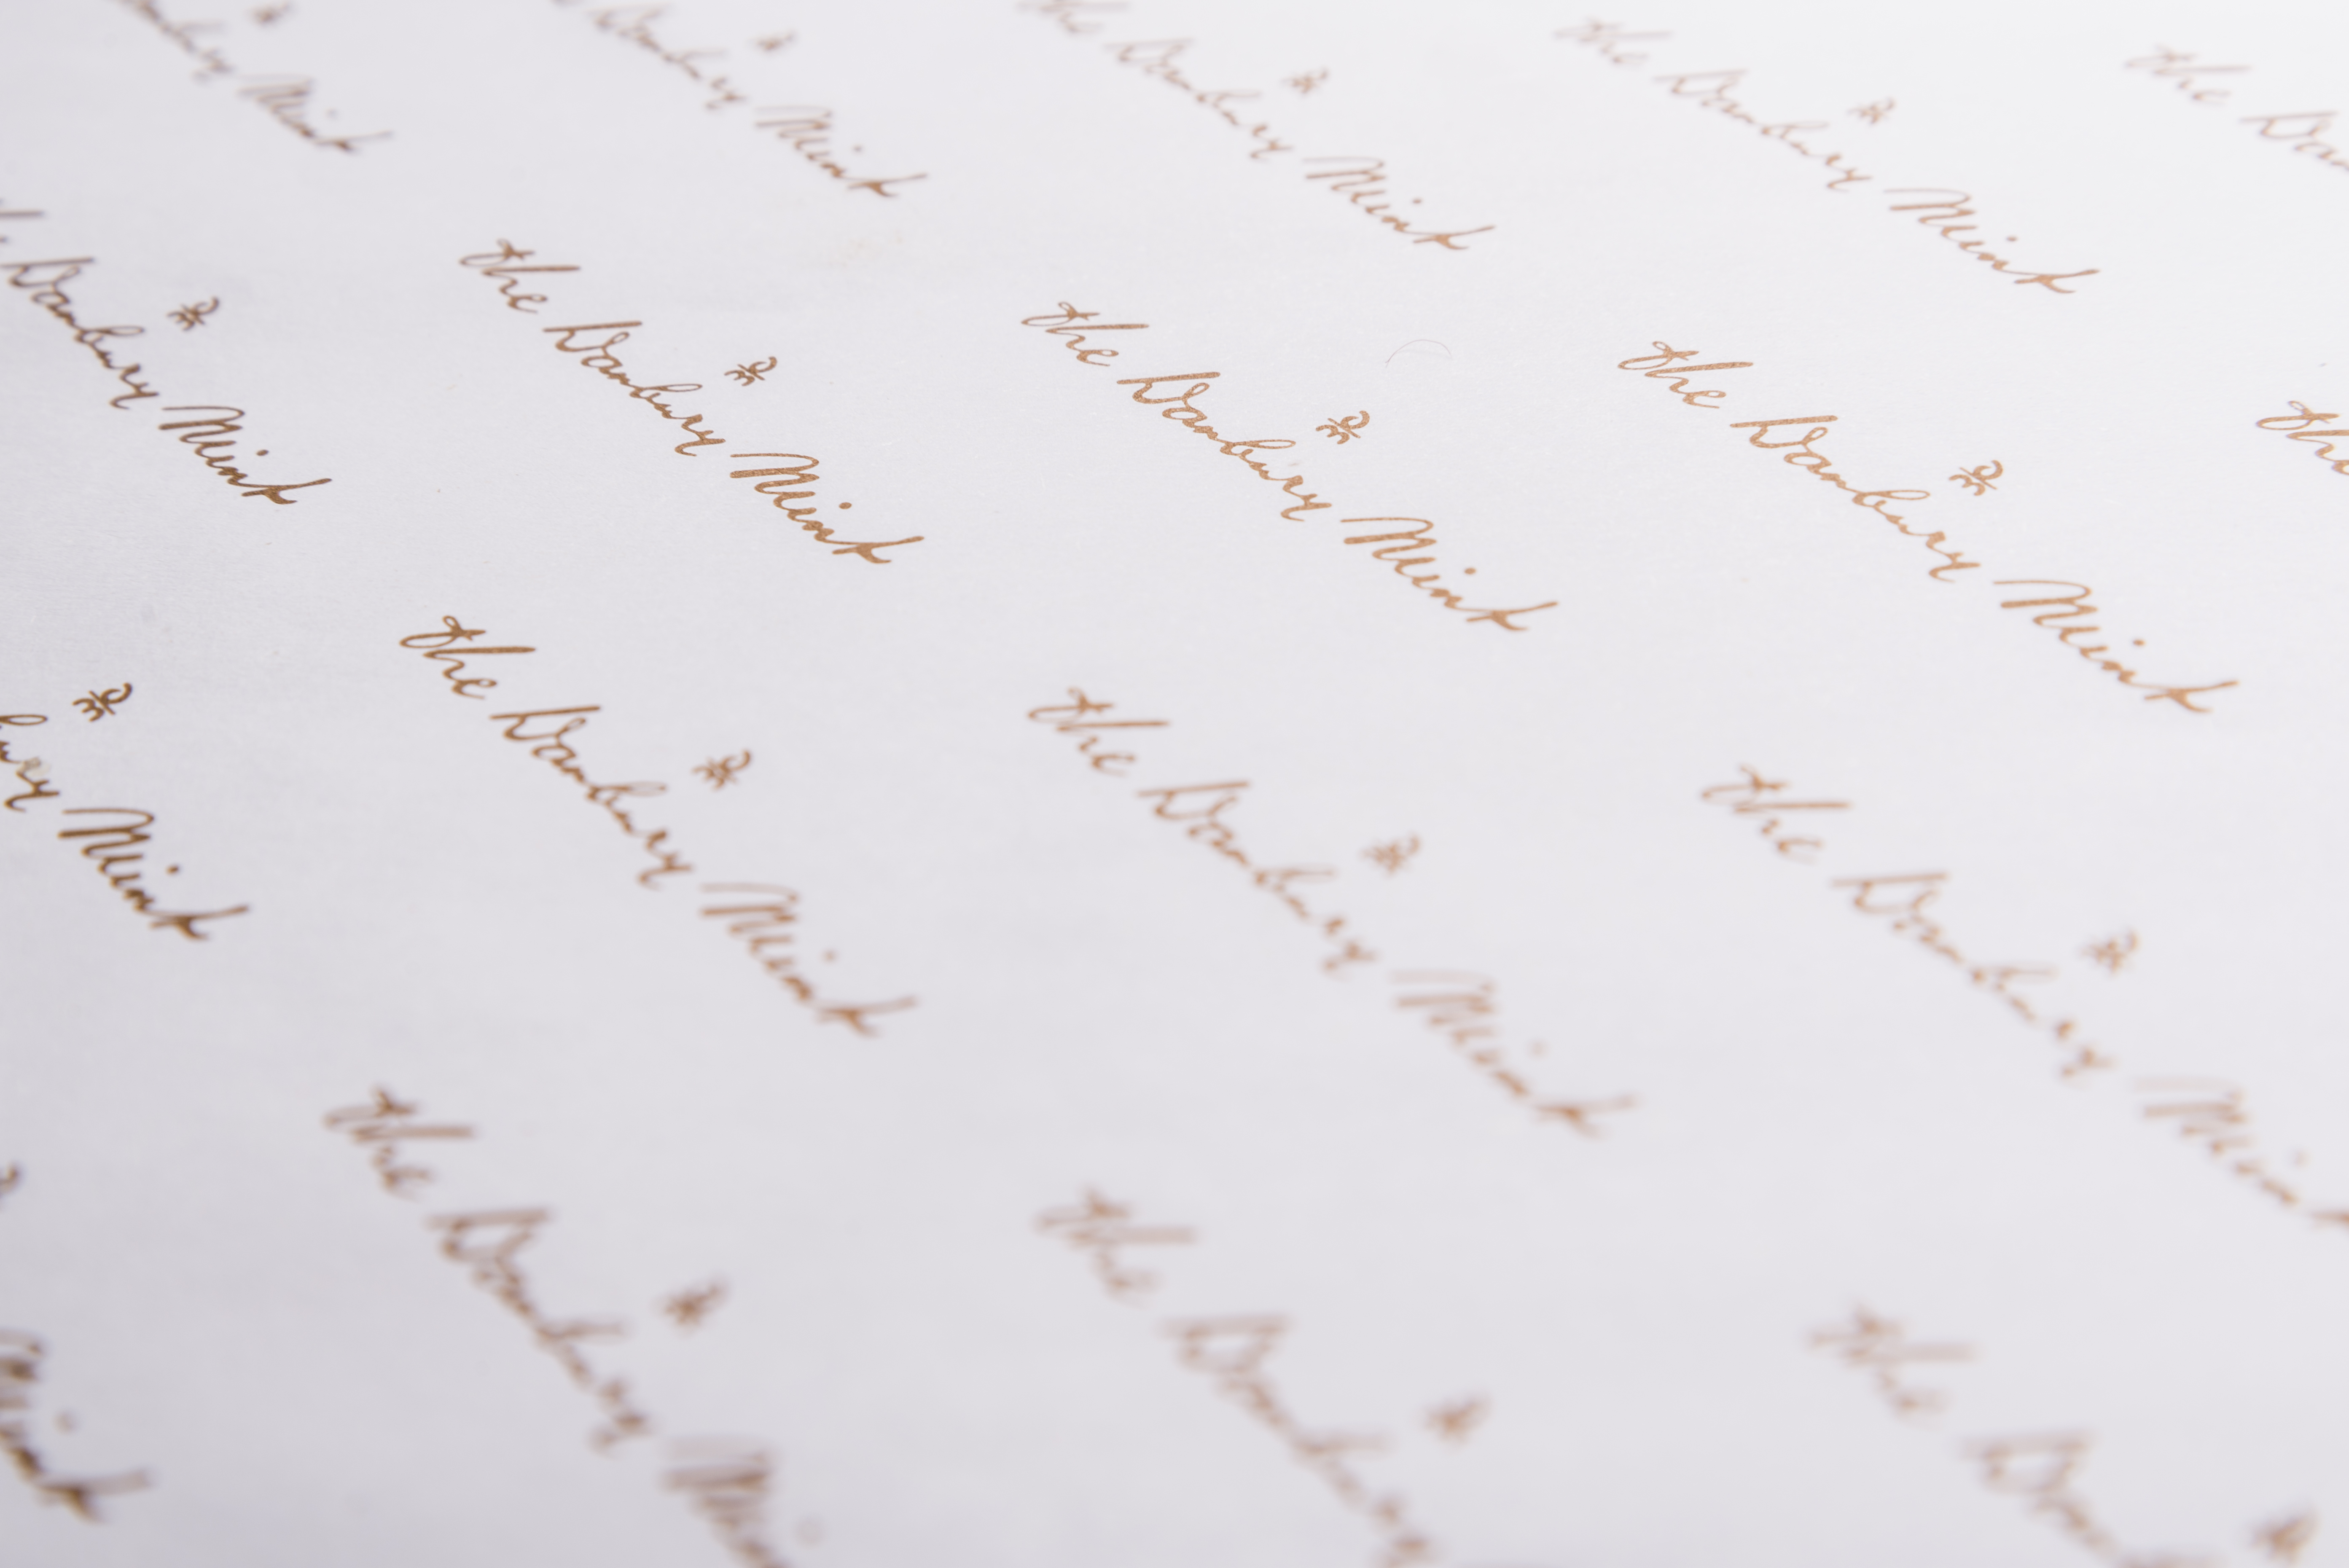 the Danbury Mint
the Danbury Mint
the Danbury Mint
the Danbury Mint
the
Danbury Mint
the Danbury Mint
the Danbury Mint
the Danbury Mint
Mint
the Danbury Mint
the Danbury Mint
the Danbury
Mint
the Danbury
the Danbury
the